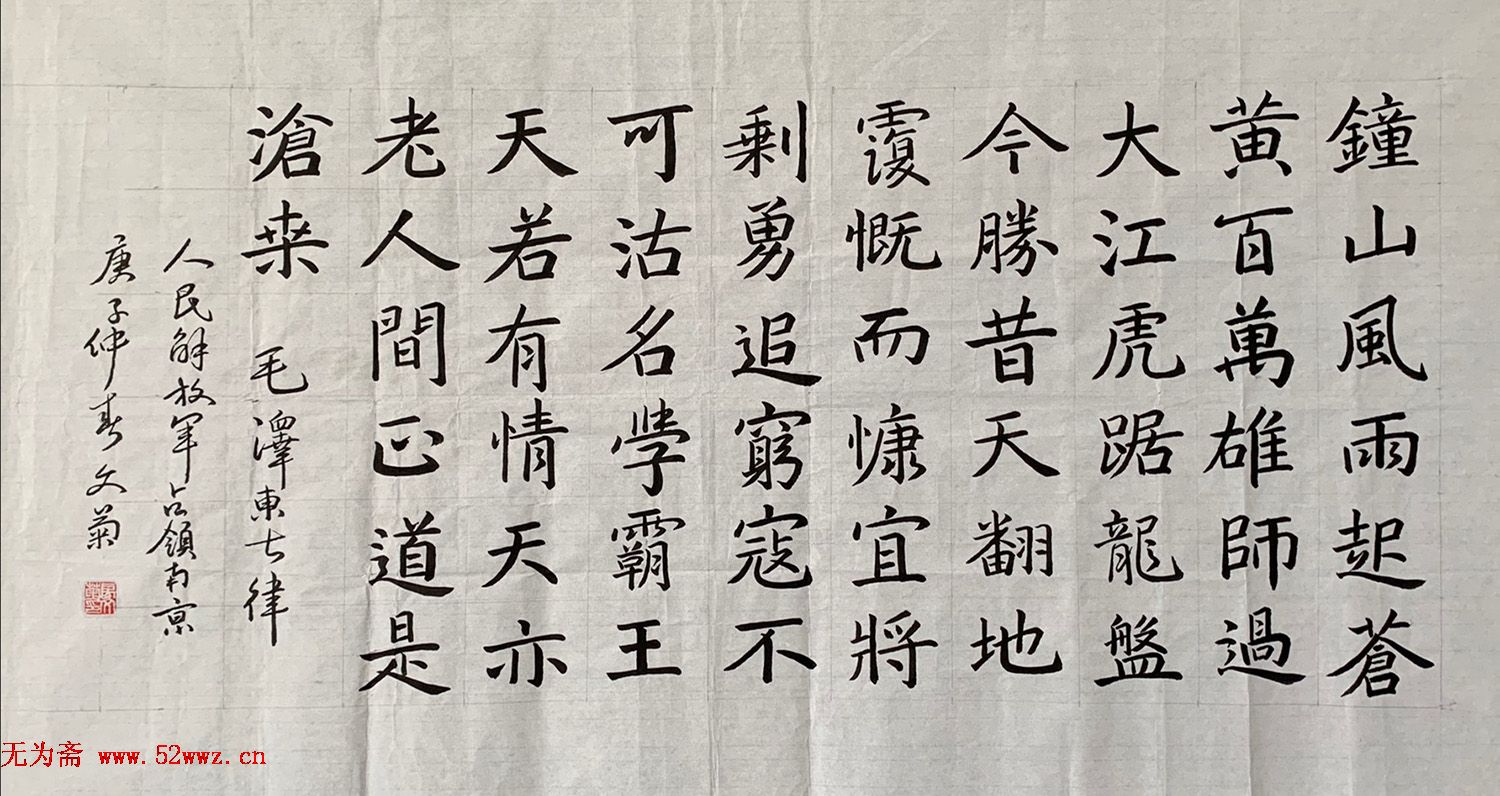 鐘山風雨起蒼
黄百萬雄師過
大江虎踞龍盤
今勝昔天翻地
覆慨而慷宜將
剩勇追窮寇不
可沽名學霸王
天若有情天亦
老人間正道是
滄桒 毛澤東七律
人民解放軍占領南京
庚子仲春文菊
无为斋 www.52wwz.cn